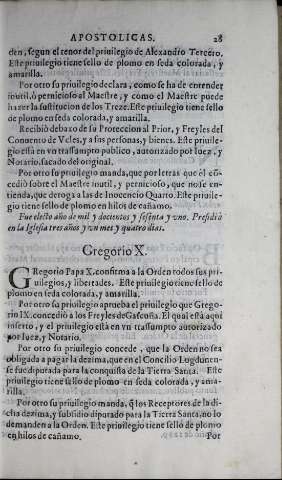 APOSTOLICAS. 28
den, segun el tenor del priuilegio de Alexandro Tercero.
Este priuilegio tiene sello de plomo en seda colorada, y
amarilla.
Por otro su priuilegio declara, como se ha de entender
inutil, ò pernicioso al Maestre, y como el Maestre puede
hazer la sustitucion de los Treze. Este priuilegio tiene sello
de plomo en seda colorada, y amarilla.
Recibiò debaxo de su Proteccion al Prior, y Freyles del
Conuento de Vcles, y a sus personas, y bienes. Este priuile-
gio està en vn trassumpto publico, autorizado por Iuez, y
Notario. sacado del original.
Por otro su priuilegio manda, que por letras que èl cõ-
cediò sobre el Maestre inutil, y pernicioso, que no se en-
tienda, que deroga a las de Inocencio Quarto. Este priuile-
gio tiene sello de plomo en hilos de cañamo.
Fue electo año de mil y docientos y sesenta y vno. Presidiò
en la Iglesia tres años y vn mes y quatro dias.
Gregorio X.
GRegorio Papa X. confirma a la Orden todos sus pri-
uilegios, y libertades. Este priuilegio tiene sello de
plomo en seda colorada, y amarilla.
Por otro su priuilegio aprueba el priuilegio que Grego-
rio IX. concediò a los Freyles de Gascuña. El qual està aqui
inserto, y el priuilegio està en vn trassumpto autorizado
por Iuez, y Notario.
Por otro su priuilegio concede, que la Orden no sea
obligada a pagar la dezima, que en el Concilio Lugdunen-
se fue diputada para la conquista de la Tierra Santa. Este
priuilegio tiene sello de plomo en seda colorada, y ama-
rilla.
Por otro su priuilegio manda, q̃ los Receptores de la di-
cha dezima, y subsidio diputado para la Tierra Santa, no lo
demanden a la Orden. Este priuilegio tiene sello de plomo
en hilos de cañamo. Por